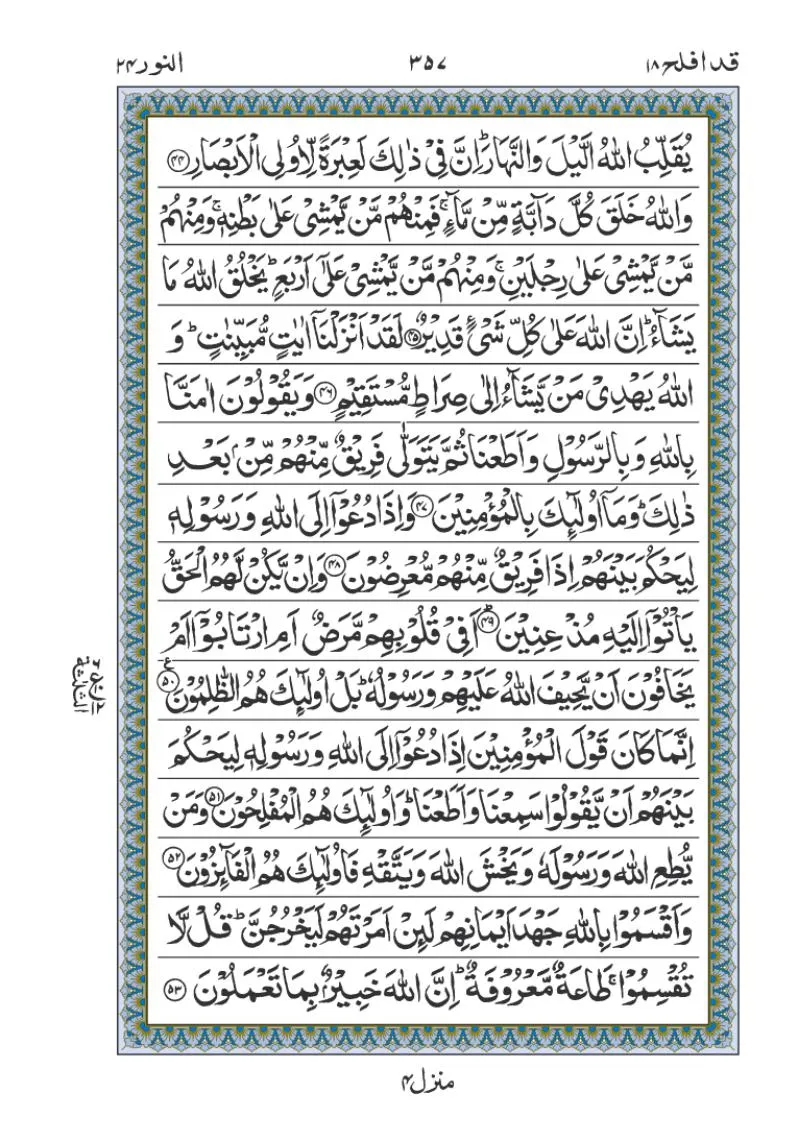 قد افلح ۱۸
۳۵۷
النور ۲۴
يُقَلِّبُ اللّٰهُ الَّيْلَ وَالنَّهَارَؕ اِنَّ فِيْ ذٰلِكَ لَعِبْرَةً لِّاُولِي الْاَبْصَارِ ﴿۴۴﴾
وَاللّٰهُ خَلَقَ كُلَّ دَآبَّةٍ مِّنْ مَّآءٍۚ فَمِنْهُمْ مَّنْ يَّمْشِيْ عَلٰى بَطْنِهٖۚ وَمِنْهُمْ
مَّنْ يَّمْشِيْ عَلٰى رِجْلَيْنِۚ وَمِنْهُمْ مَّنْ يَّمْشِيْ عَلٰٓى اَرْبَعٍؕ يَخْلُقُ اللّٰهُ مَا
يَشَآءُؕ اِنَّ اللّٰهَ عَلٰى كُلِّ شَيْءٍ قَدِيْرٌ ﴿۴۵﴾ لَقَدْ اَنْزَلْنَاۤ اٰيٰتٍ مُّبَيِّنٰتٍؕ وَ
اللّٰهُ يَهْدِيْ مَنْ يَّشَآءُ اِلٰى صِرَاطٍ مُّسْتَقِيْمٍ ﴿۴۶﴾ وَيَقُوْلُوْنَ اٰمَنَّا
بِاللّٰهِ وَبِالرَّسُوْلِ وَاَطَعْنَا ثُمَّ يَتَوَلّٰى فَرِيْقٌ مِّنْهُمْ مِّنْۢ بَعْدِ
ذٰلِكَؕ وَمَاۤ اُولٰٓئِكَ بِالْمُؤْمِنِيْنَ ﴿۴۷﴾ وَاِذَا دُعُوْۤا اِلَى اللّٰهِ وَرَسُوْلِهٖ
لِيَحْكُمَ بَيْنَهُمْ اِذَا فَرِيْقٌ مِّنْهُمْ مُّعْرِضُوْنَ ﴿۴۸﴾ وَاِنْ يَّكُنْ لَّهُمُ الْحَقُّ
يَاْتُوْۤا اِلَيْهِ مُذْعِنِيْنَؕ ﴿۴۹﴾ اَفِيْ قُلُوْبِهِمْ مَّرَضٌ اَمِ ارْتَابُوْۤا اَمْ
يَخَافُوْنَ اَنْ يَّحِيْفَ اللّٰهُ عَلَيْهِمْ وَرَسُوْلُهٗؕ بَلْ اُولٰٓئِكَ هُمُ الظّٰلِمُوْنَ ﴿۵۰﴾ ع
اِنَّمَا كَانَ قَوْلَ الْمُؤْمِنِيْنَ اِذَا دُعُوْۤا اِلَى اللّٰهِ وَرَسُوْلِهٖ لِيَحْكُمَ
بَيْنَهُمْ اَنْ يَّقُوْلُوْا سَمِعْنَا وَاَطَعْنَاؕ وَاُولٰٓئِكَ هُمُ الْمُفْلِحُوْنَ ﴿۵۱﴾ وَمَنْ
يُّطِعِ اللّٰهَ وَرَسُوْلَهٗ وَيَخْشَ اللّٰهَ وَيَتَّقْهِ فَاُولٰٓئِكَ هُمُ الْفَآئِزُوْنَ ﴿۵۲﴾
وَاَقْسَمُوْا بِاللّٰهِ جَهْدَ اَيْمَانِهِمْ لَئِنْ اَمَرْتَهُمْ لَيَخْرُجُنَّؕ قُلْ لَّا
تُقْسِمُوْاۚ طَاعَةٌ مَّعْرُوْفَةٌؕ اِنَّ اللّٰهَ خَبِيْرٌۢ بِمَا تَعْمَلُوْنَ ﴿۵۳﴾
منزل ۴